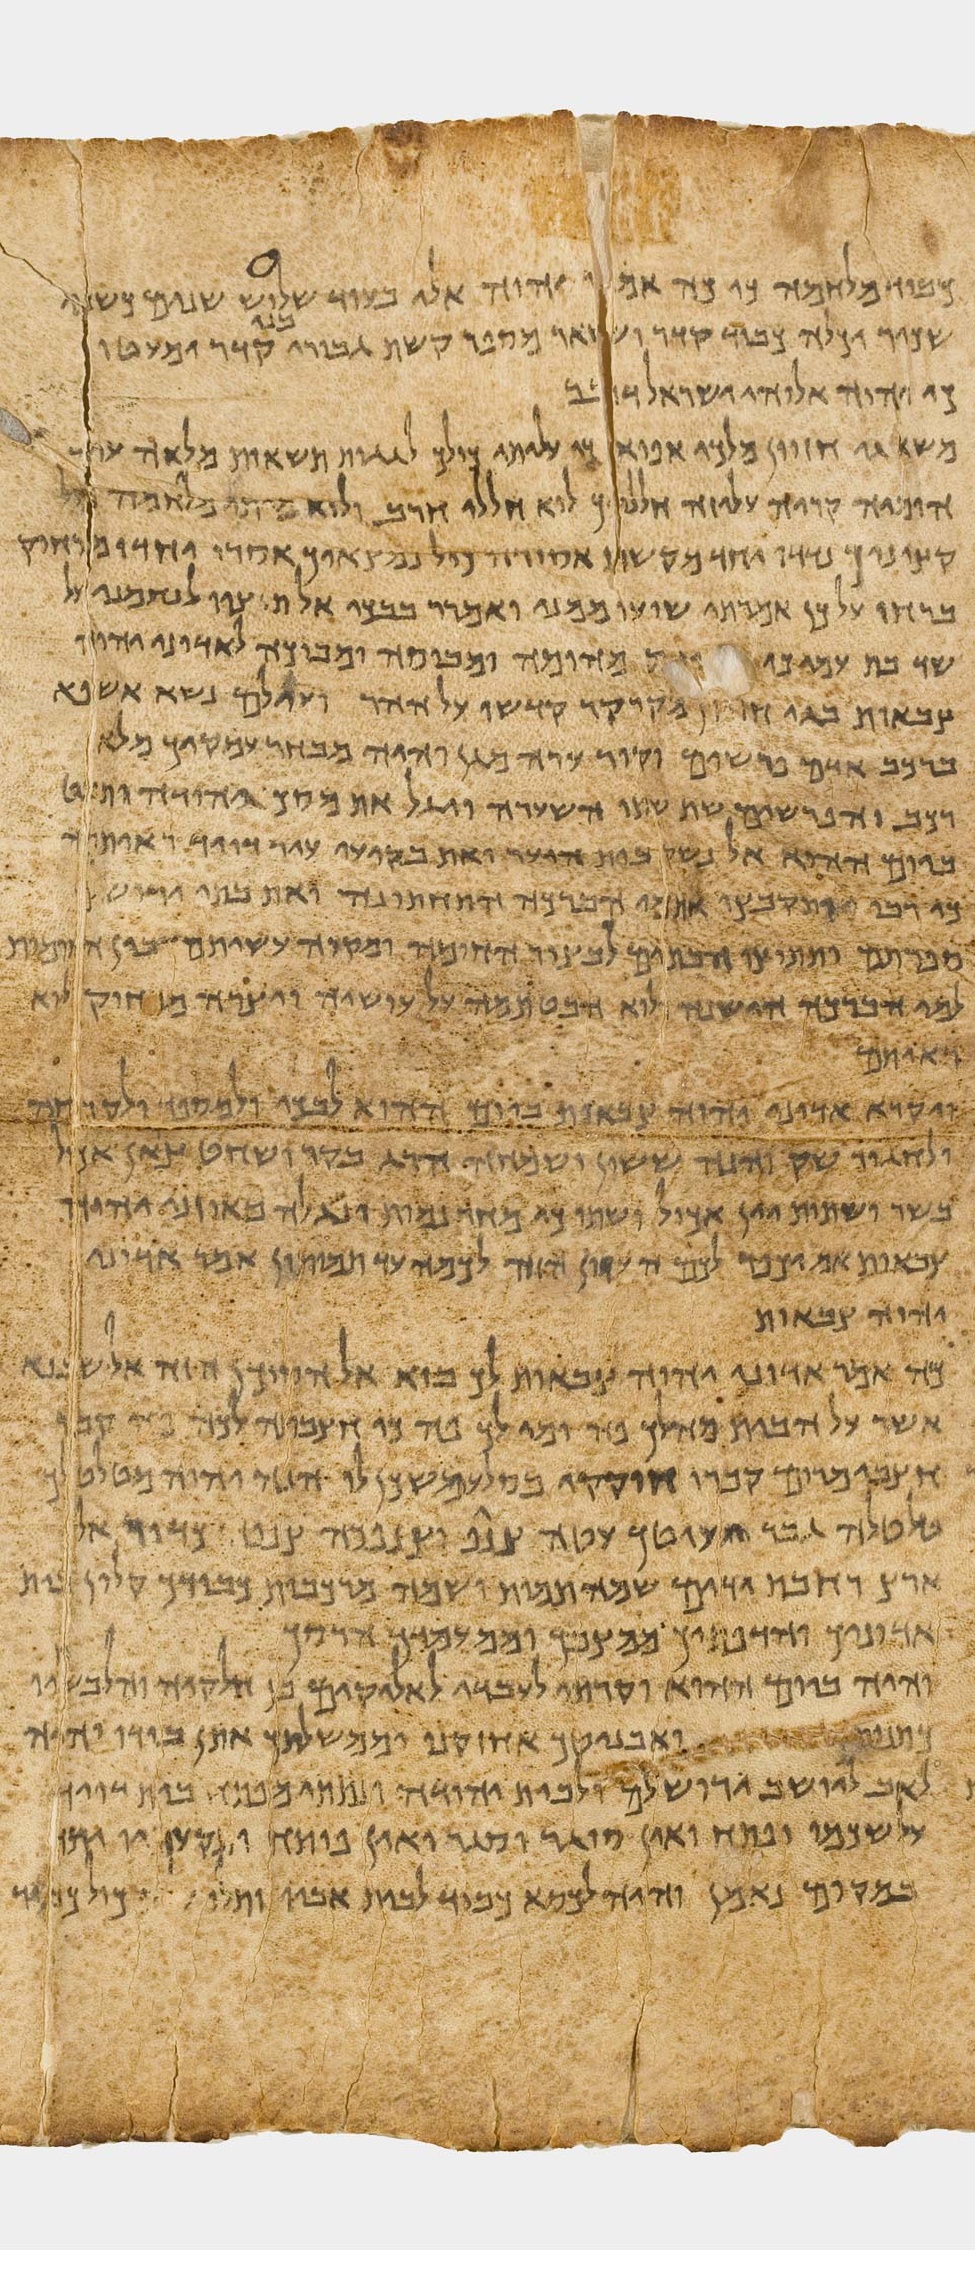 כבוד מלחמה כי כה אמר יהוה אלי בעוד שלוש שנים כשני
שכיר וכלה כבוד קדר ושאר מספר קשת גבורי בני קדר ימעטו
כי יהוה אלוהי ישראל דבר
משא גי חזיון מלכי אפוא כי עליתי כולך לגגות תשאות מלאה עיר
הומיה קריה עליזה חלליך לוא חללי חרב ולוא מיתי מלחמה כול
קציניך נדדו יחד מקשת אסורה כול נמצאיך אסרו יחדו מרחוק
ברחו על כן אמרתי שועו ממני ואמרר בבכי אל תיצו לנחמני על
שד בת עמי כי מהומה ומבוסה ומבוכה לאדוני יהוה
צבאות בגי חזיון מקרקר קדשו על ההר ועילם נשא אשפא
ברכב אדם פרשים וקיר ערה מגן והיה מבחר עמקיך מלאו
רכב והפרשים שת שתו השערה ויגל את מסך יהודה ותבט
ביום ההוא אל נשק בית היער ואת בקיעי עיר דויד ראיתמה
כי רבו ותקבצו את מי הברכה התחתונה ואת בתי
ספרתם ותתוצו הבתים לבצור החומה ומקוה עשיתם בין החומות
למי הברכה הישנה ולוא הבטתמה על עושיה ויצרה מרחוק לוא
ראיתם
ויקרא אדוני יהוה צבאות ביום ההוא לבכי ולמספד ולקרחה
ולחגור שק והנה ששון ושמחה הרג בקר ושחט צאן אכול
בשר ושתות יין אכול ושתו כי מחר נמות ונגלה באוזני יהוה
צבאות אם יכפר לכם העוון הזה לכמה עד תמותון אמר אדוני
יהוה צבאות
כה אמר אדוני יהוה צבאות לך בוא אל הסוכן הזה אל שבנא
אשר על הבית מה לך פה ומי לך פה כי חצבתה לכה פה קבר
חוצבי מרום קברו חוקקי בסלע משכן לו הנה יהוה מטלטלך
טלטלה גבר יעוטך עטה צנף וצנפכה צנפ כדור אל
ארץ רחבת ידים שמה תמות ושמה מרכבות כבודך קלון בית
אדוניך והדפתיך ממצבך וממעמדך אהרסך
והיה ביום ההוא וקרתי לעבדי לאליקים בן חלקיה והלבשתיו
ואבניטך אחזקנו וממשלתך אתן בידו והיה
לאב ליושב ירושלם ולבית יהודה ונתתי מפתח בית דויד
על שכמו ופתח ואין סוגר וסגר ואין פותח ותקעתיו יתד
במקום נאמן והיה לכסא כבוד לבית אביו ותלו כול כבוד